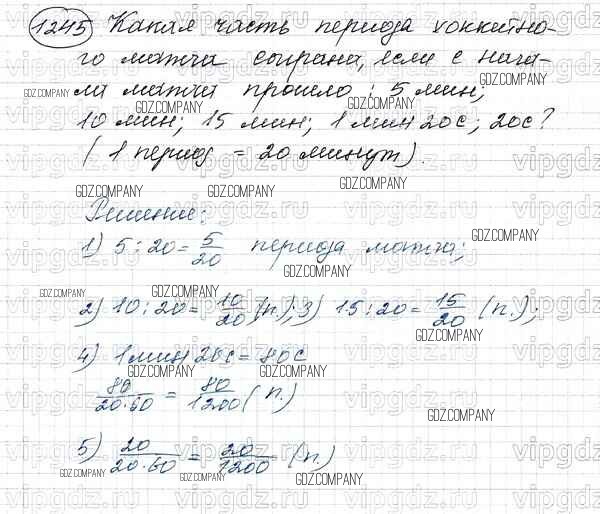 1245 Какая часть периода хоккейно-
го матча сыграна, если с нача-
ла матча прошло: 5 мин;
10 мин; 15 мин; 1 мин 20с; 20с?
(1 период = 20 минут).
Решение:
1) 5:20 = 5/20 периода матча;
2) 10:20 = 10/20 (п.); 3) 15:20 = 15/20 (п.);
4) 1 мин 20с = 80с
80/20·60 = 80/1200 (п.)
5) 20/20·60 = 20/1200 (п.)
GDZ.COMPANY
vipgdz.ru